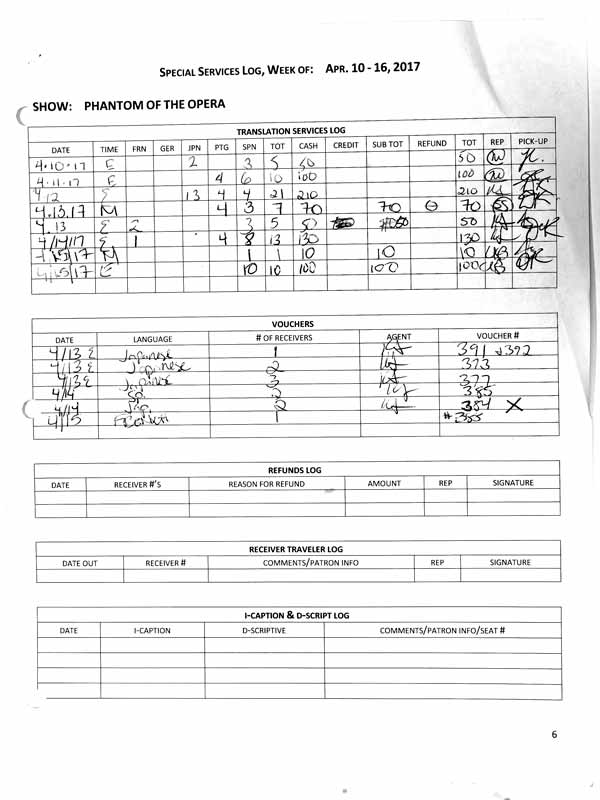 SPECIAL SERVICES LOG, WEEK OF: APR. 10 - 16, 2017
SHOW: PHANTOM OF THE OPERA
TRANSLATION SERVICES LOG
DATE TIME FRN GER JPN PTG SPN TOT CASH CREDIT SUB TOT REFUND TOT REP PICK-UP
4.10.17 E 2 3 5 50 50
4.11.17 E 4 6 10 100 100
4/12 E 13 4 4 21 210 210
4.13.17 M 4 3 7 70 70 ⊖ 70 SS
4.13 E 2 3 5 50 50
4/14/17 E 1 4 8 13 130 130
4/15/17 M 1 1 10 10 10
4/15/17 E 10 10 100 100 100
VOUCHERS
DATE LANGUAGE # OF RECEIVERS AGENT VOUCHER #
4/13 E Japanese 1 391 + 392
4/13 E Japanese 2 393
4/13 E Japanese 3 377
4/14 Sp. 385
4/14 2 384 X
4/15 1 #
REFUNDS LOG
DATE RECEIVER #'S REASON FOR REFUND AMOUNT REP SIGNATURE
RECEIVER TRAVELER LOG
DATE OUT RECEIVER # COMMENTS/PATRON INFO REP SIGNATURE
I-CAPTION & D-SCRIPT LOG
DATE I-CAPTION D-SCRIPTIVE COMMENTS/PATRON INFO/SEAT #
6